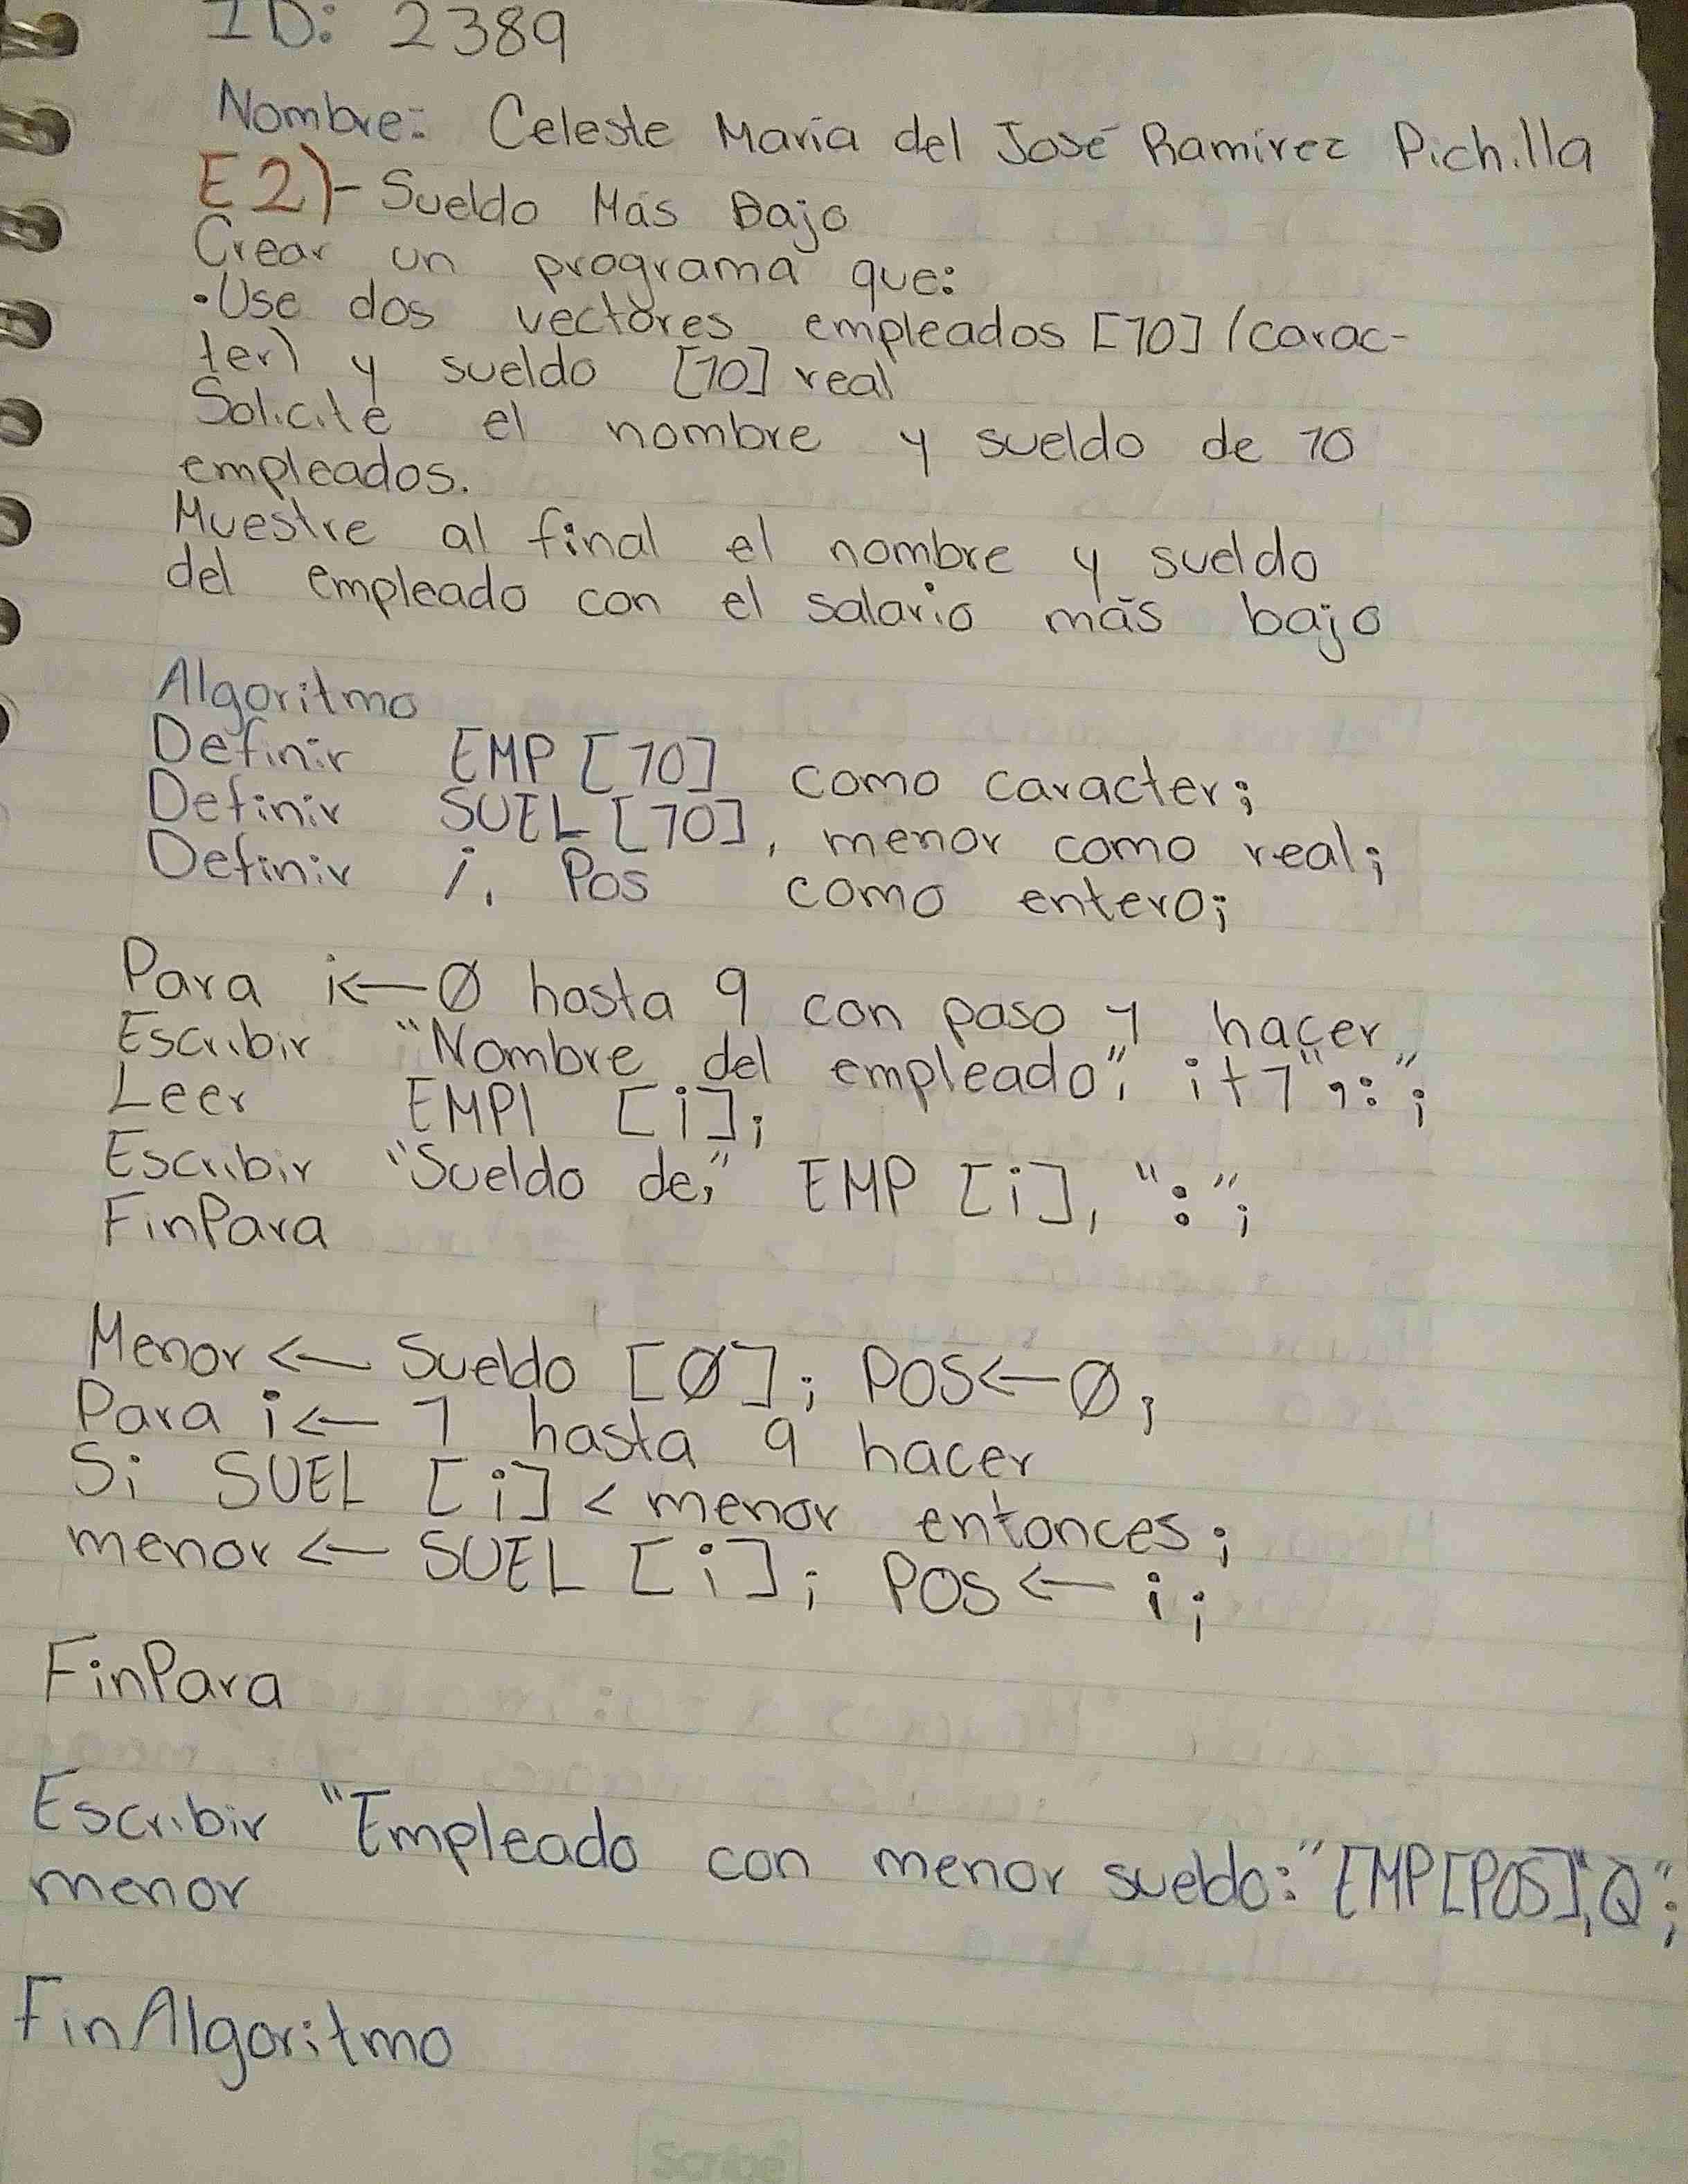 ID: 2389
Nombre: Celeste María del José Ramírez Pichilla
E2)- Sueldo Más Bajo
Crear un programa que:
•Use dos vectores empleados [10] (carac-
ter) y sueldo [10] real
Solicite el nombre y sueldo de 10
empleados.
Muestre al final el nombre y sueldo
del empleado con el salario más bajo
Algoritmo
Definir EMP [10] como caracter;
Definir SUEL [10], menor como real;
Definir i, Pos como entero;
Para i<—Ø hasta 9 con paso 1 hacer
Escribir "Nombre del empleado", i+1",:";
Leer EMPl [i];
Escribir "Sueldo de," EMP [i], ":";
FinPara
Menor <— Sueldo [Ø]; POS<—Ø;
Para i<— 1 hasta 9 hacer
Si SUEL [i] < menor entonces;
menor <— SUEL [i]; POS <— i;
FinPara
Escribir "Empleado con menor sueldo:" EMP[POS],"Q";
menor
FinAlgoritmo
Scribe